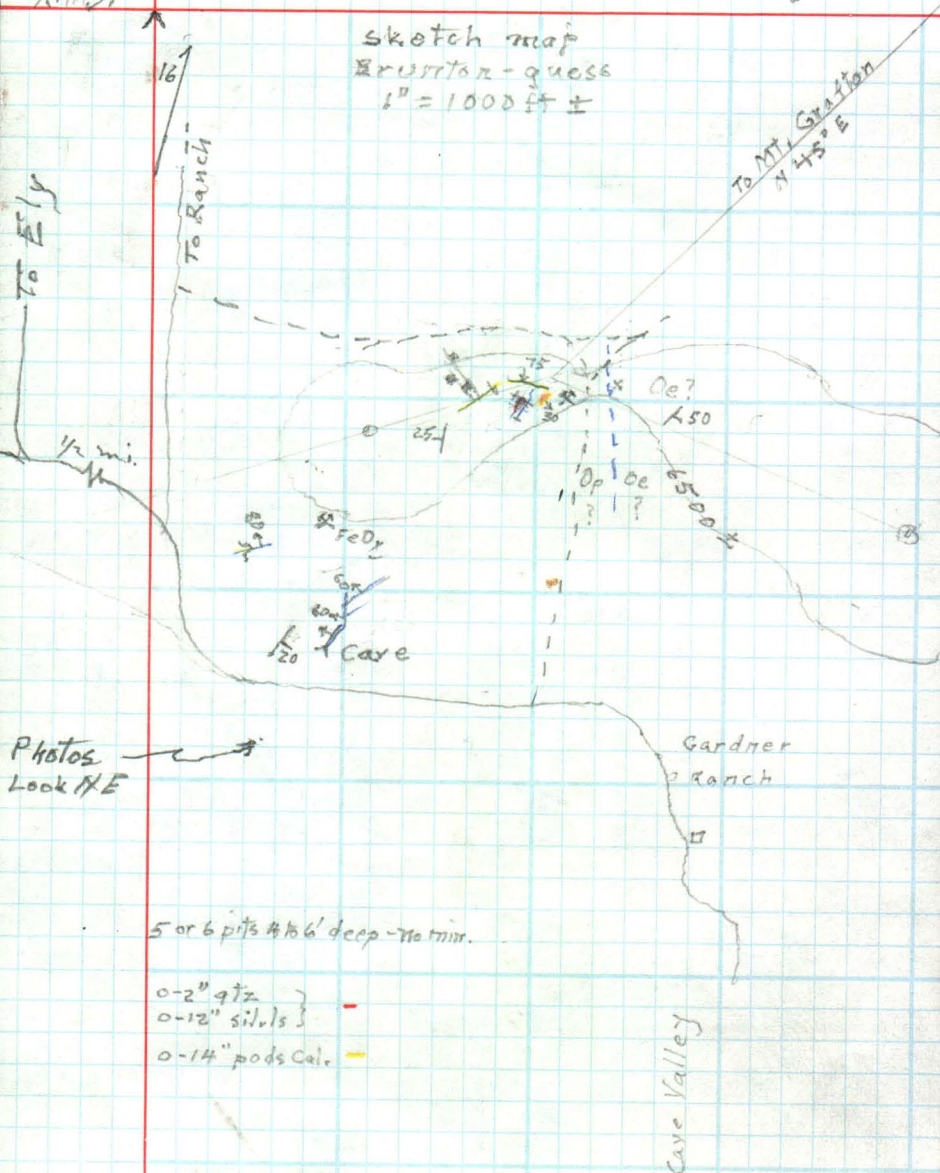 sketch map
Brunton - guess
1" = 1000 ft ±
16
To Ranch
To Ely
To Mt. Grafton
N 45° E
1/2 mi.
75
30
25
Oe?
50
Op Oe
? ?
6500 ±
FeOx
60
20
Cave
Photos
Look NE
Gardner
Ranch
5 or 6 pits to 6' deep - no min.
0-2" qtz
0-12" sil. ls
0-14" pods Cal.
Cave Valley